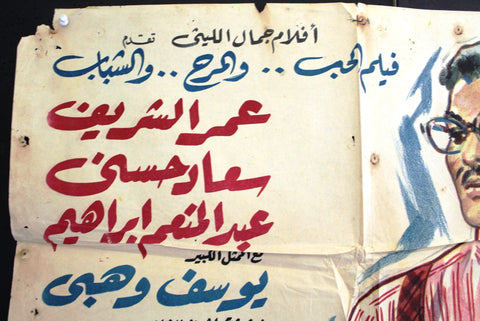 أفلام جمال الليثى تقدم
فيلم الحب .. والمرح .. والشباب
عمر الشريف
سعاد حسنى
عبد المنعم ابراهيم
مع الممثل الكبير
يوسف وهبى